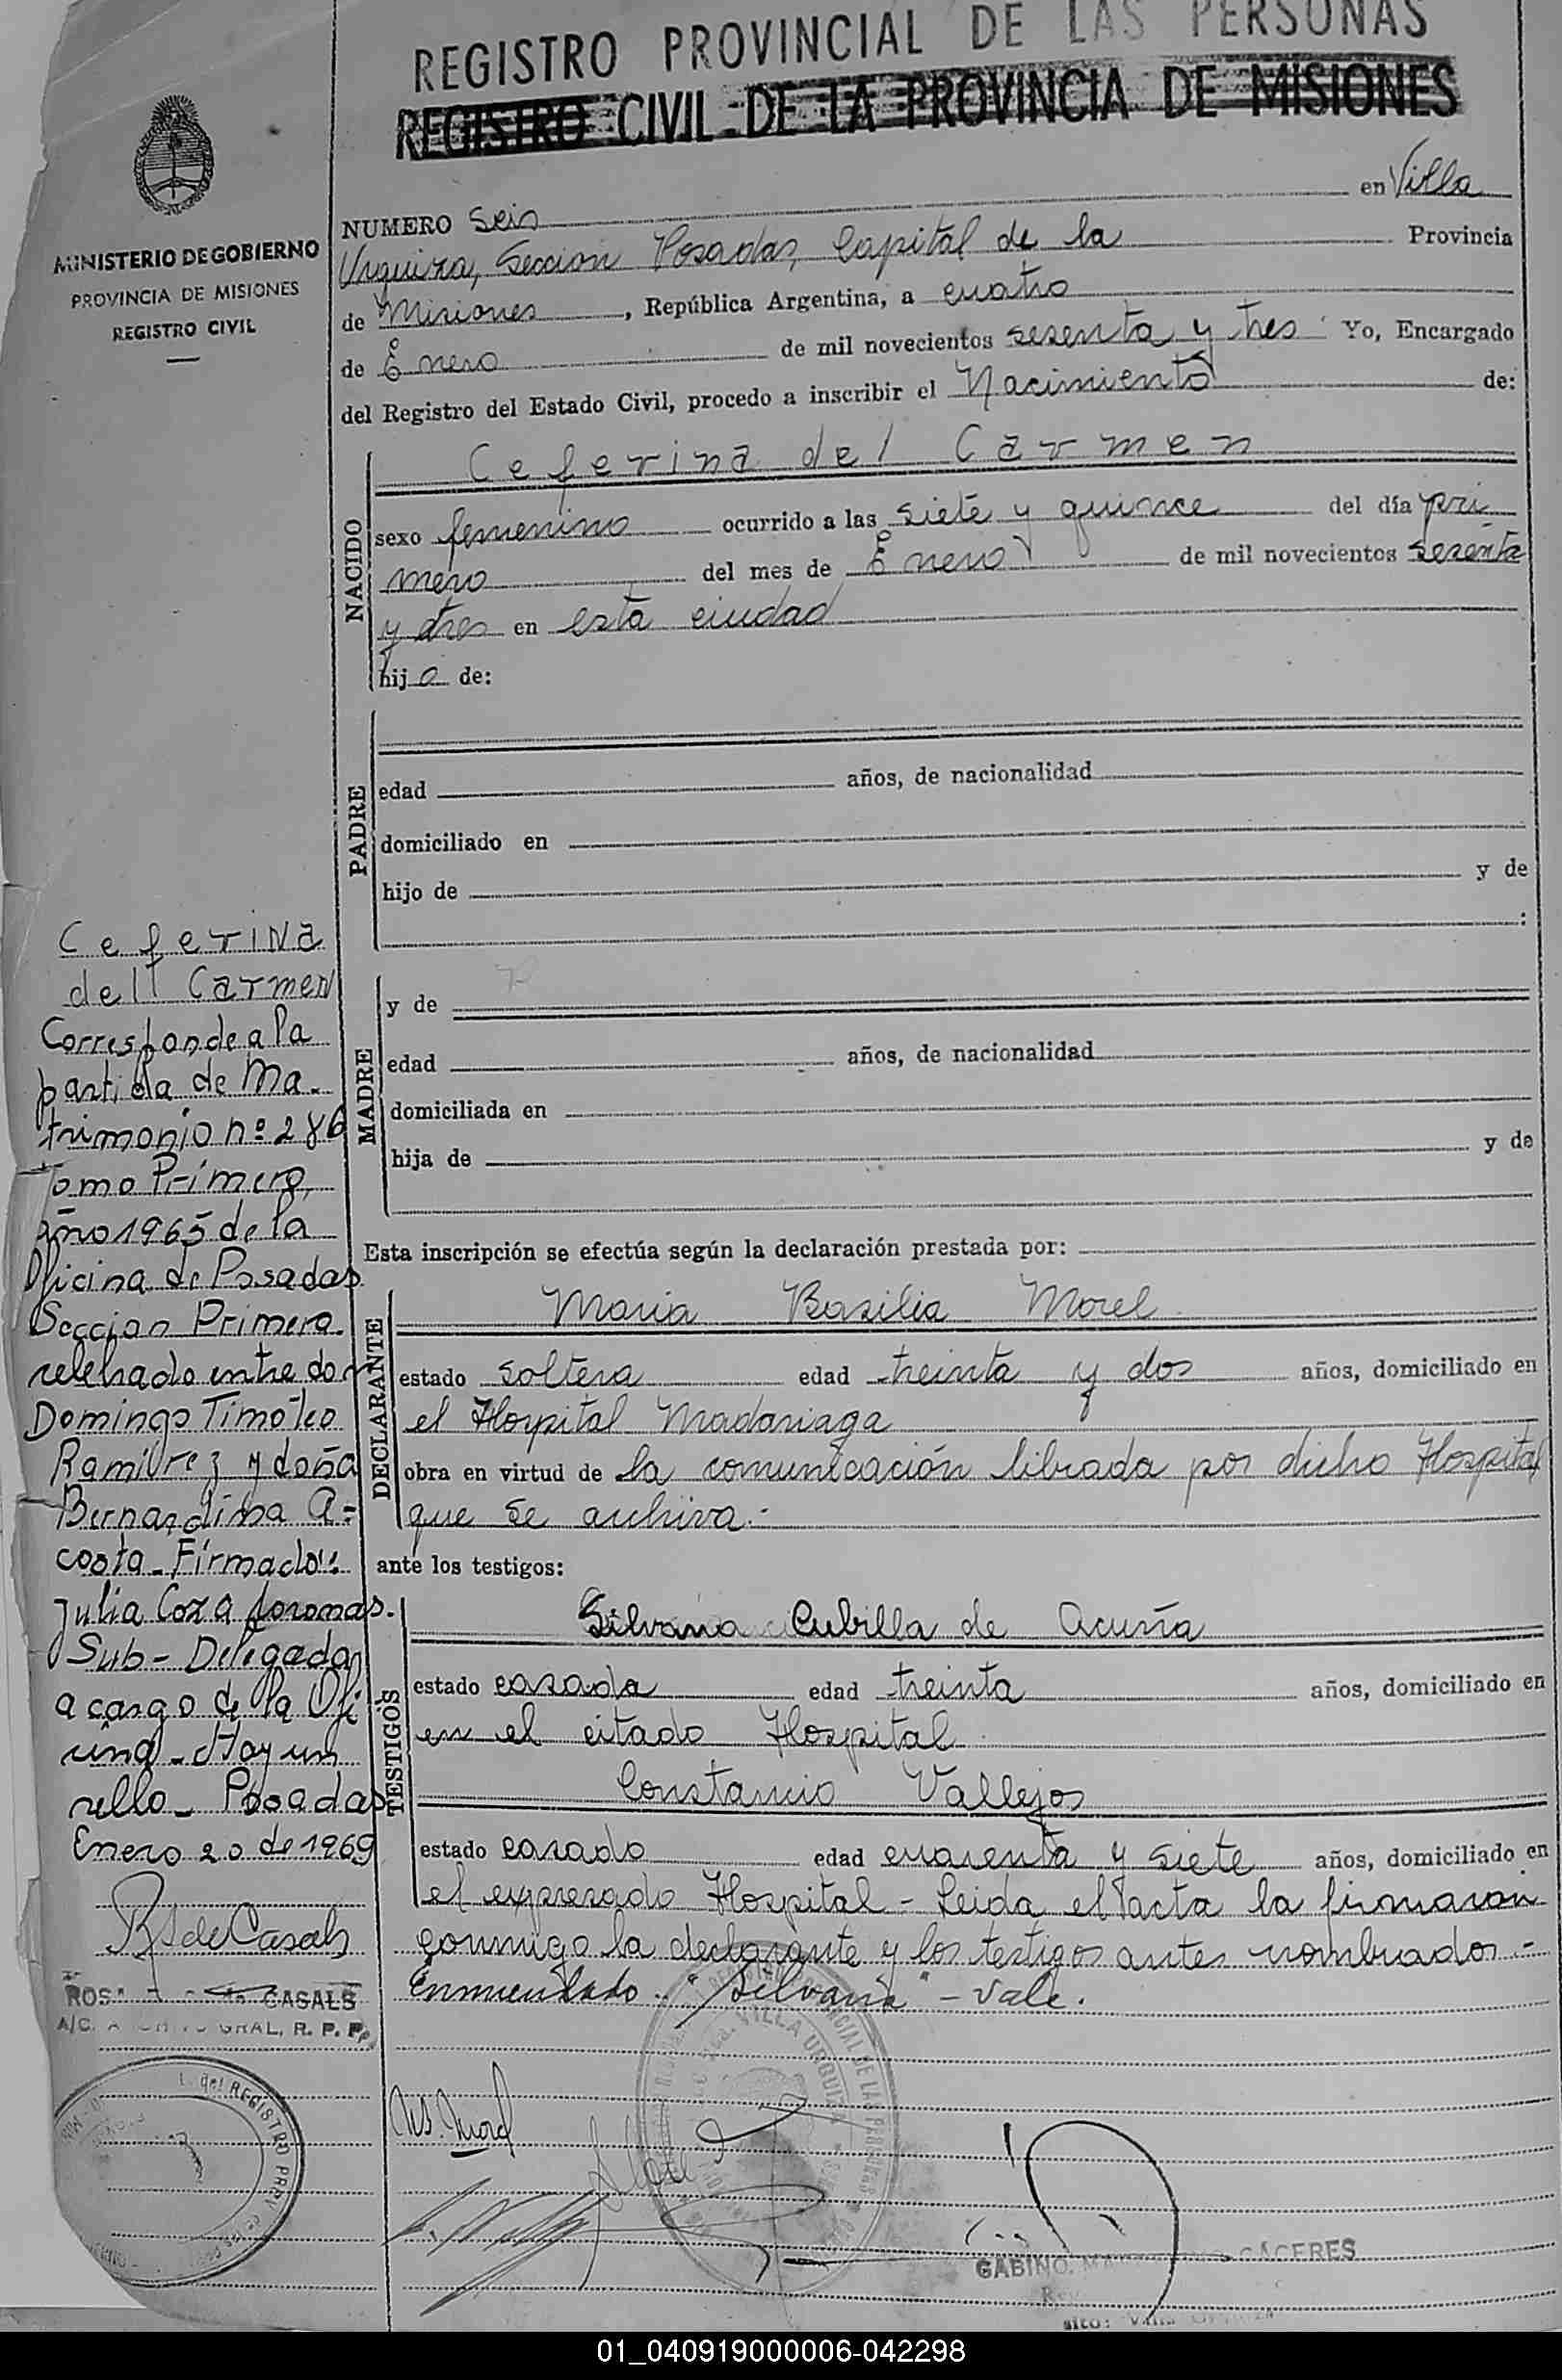 REGISTRO PROVINCIAL DE LAS PERSONAS
REGISTRO CIVIL DE LA PROVINCIA DE MISIONES
MINISTERIO DE GOBIERNO
PROVINCIA DE MISIONES
REGISTRO CIVIL
NUMERO Seis en Villa
Urquiza, Sección Posadas, Capital de la Provincia
de Misiones, República Argentina, a cuatro
de Enero de mil novecientos sesenta y tres Yo, Encargado
del Registro del Estado Civil, procedo a inscribir el Nacimiento de:
NACIDO
Ceferina del Carmen
sexo femenino ocurrido a las siete y quince del día pri
mero del mes de Enero de mil novecientos sesenta
y tres en esta ciudad
hija de:
PADRE
edad años, de nacionalidad
domiciliado en
hijo de y de
:
MADRE
y de
edad años, de nacionalidad
domiciliada en
hija de y de
Esta inscripción se efectúa según la declaración prestada por:
DECLARANTE
Maria Basilia Morel
estado soltera edad treinta y dos años, domiciliado en
el Hospital Madariaga
obra en virtud de la comunicación librada por dicho Hospital
que se archiva.-
ante los testigos:
TESTIGOS
Silvana Cubilla de Acuña
estado casada edad treinta años, domiciliado en
en el citado Hospital
Constancio Vallejos
estado casado edad cuarenta y siete años, domiciliado en
el expresado Hospital - Leida el acta la firmaron
conmigo la declarante y los testigos antes nombrados -
Enmendado: "Silvana" - Vale.
Ceferina
del Carmen
Corresponde a la
partida de Ma-
trimonio nº 286
Tomo Primero,
año 1965 de la
Oficina de Posadas
Seccion Primera
celebrado entre don
Domingo Timoteo
Ramirez y doña
Bernardina A-
costa - Firmado:
Julia
Sub-Delegada
a cargo de la Ofi
cina - Hay un
sello - Posadas
Enero 20 de 1969
de Casals
CASALS
GRAL. R. P. P.
del REGISTRO PROV.
M.B. Morel
VILLA URQUIZA
GABINO CÁCERES
01_040919000006-042298